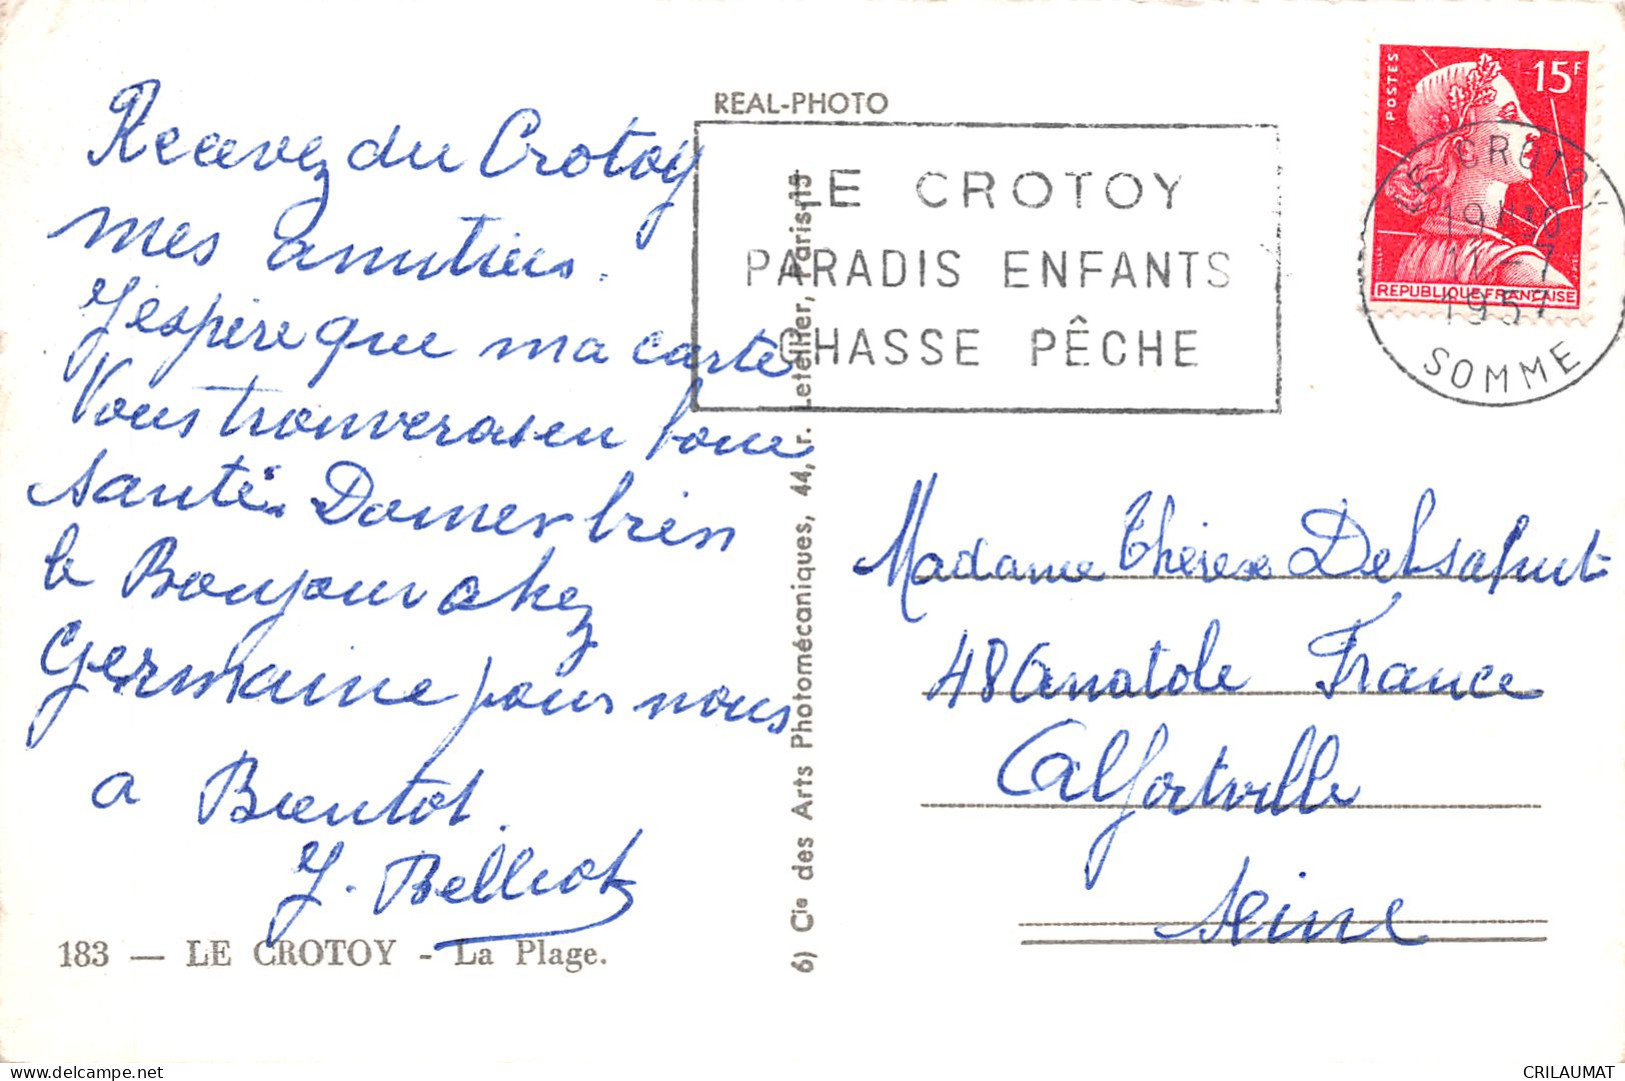 Recevez du Crotoy
mes amitiés.
J'espère que ma carte
Vous trouveras en bone
Santé. Donner bien
le Bonjour chez
Germaine pour nous
a Bientot.
J. Belliot
183 — LE CROTOY - La Plage.
REAL-PHOTO
6) Cie des Arts Photomécaniques, 44, r. Letellier, Paris-15
LE CROTOY
PARADIS ENFANTS
CHASSE PÊCHE
POSTES
15F
REPUBLIQUE FRANÇAISE
LE CROTOY
19H30
11-7
1957
SOMME
Madame Thérèse
48 Anatole France
Alfortville
Seine
delcampe.net
CRILAUMAT